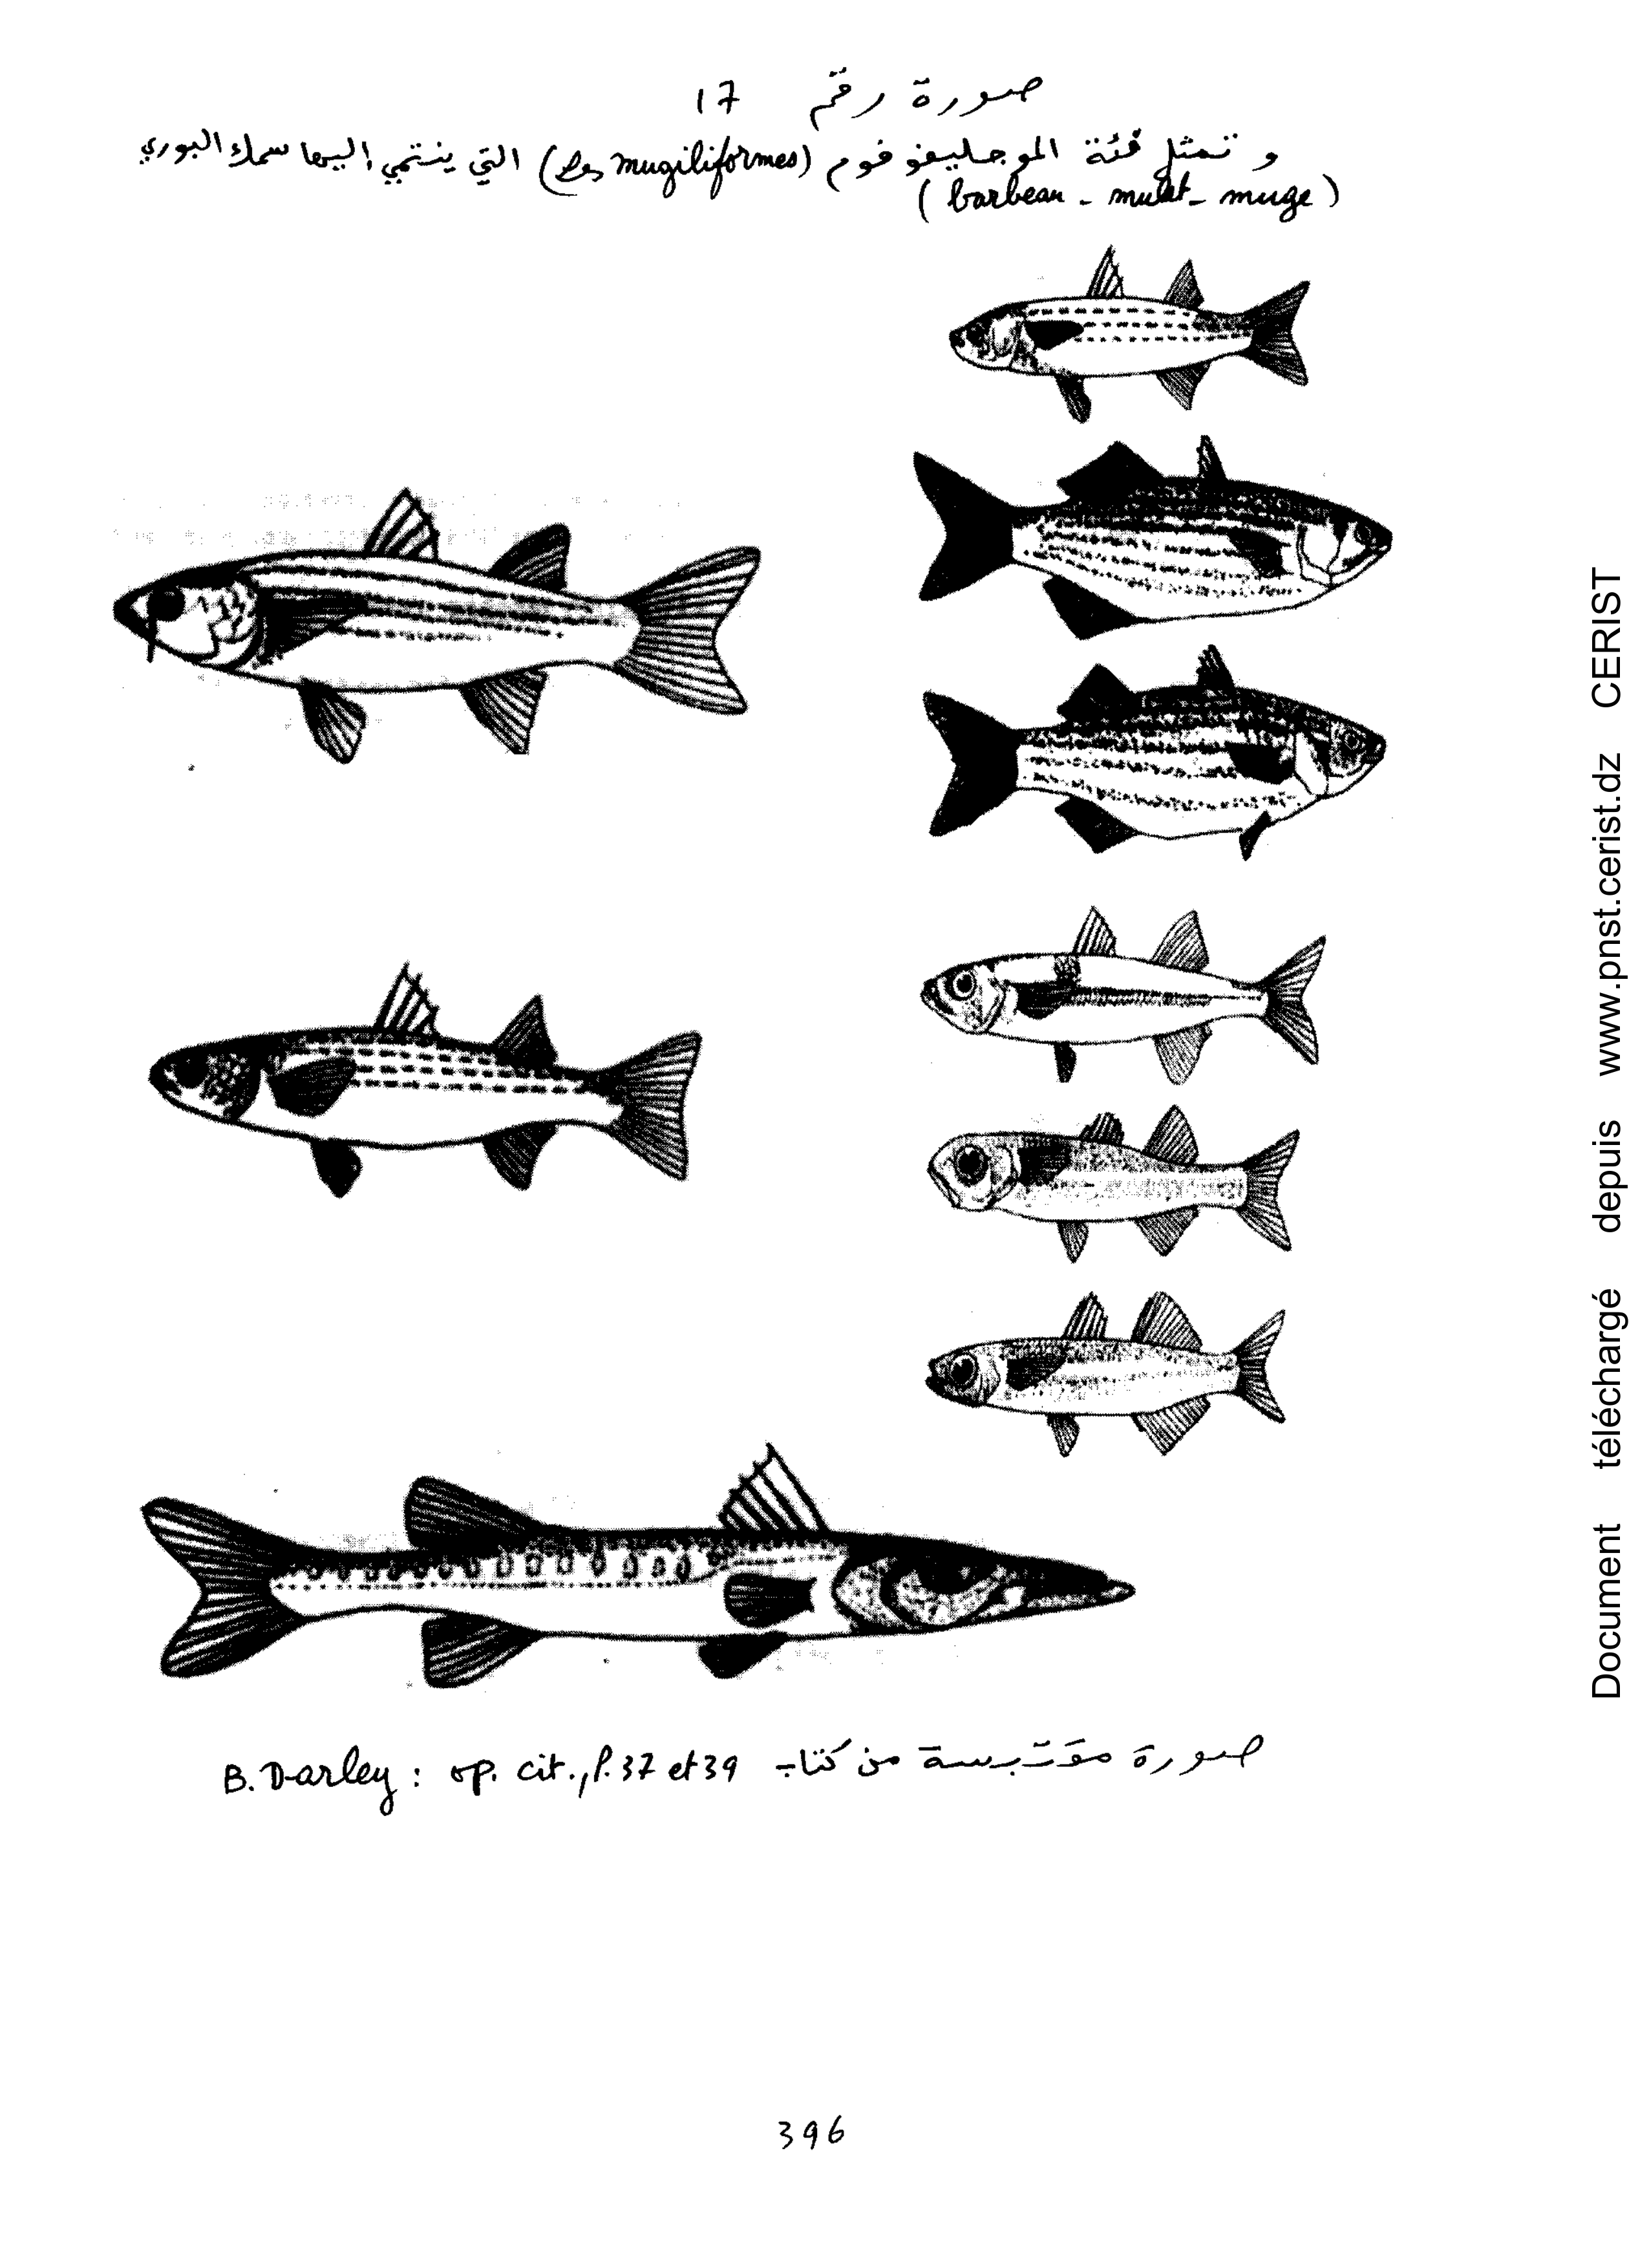 صورة رقم 17
و تمثل فئة الموجليفورم (les mugiliformes) التي ينتمي إليها سمك البوري
(barbeau - mulet - muge)
صورة مقتبسة من كتاب B. Darley : op. cit., p. 37 et 39
396
Document téléchargé depuis www.pnst.cerist.dz CERIST